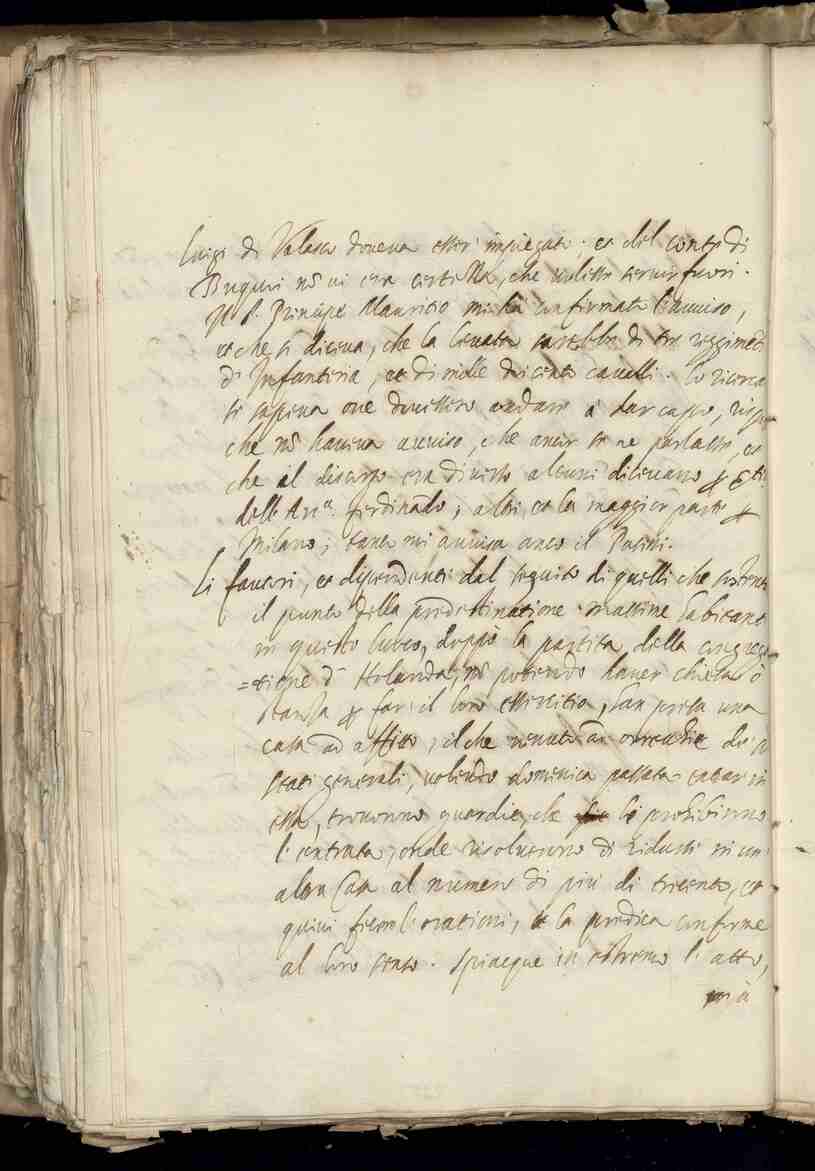 Luigi di Velasco doveva esser impiegato; et del conte di
Buquoi nõ vi era certezza, che volesse servir fuori.
Il S.r Principe Mauritio mi ha confirmato l'avviso,
et che si diceva, che la levata sarebbe di tre reggimẽti
d'Infanteria, et di mille ducento cavalli. Io ricercai
si sapeva ove dovessero andare a dar capo, rispo
che nõ haveva avviso, che ancor se ne parlasse, et
che il discorso era diverso alcuni dicevano
dell'Arc.a Ferdinãdo, altri, et la maggior parte
Milano; tanto mi avvisa anco il Pasini.
Li fautori, et dipendenti dal seguito di quelli che sostent
il punto della predestinatione massime habitanti
in questo luoco, doppò la partita della congrega
=tione d'Holanda, nõ potendo haver chiesa ò
stanza far il loro essercitio, han presa una
casa ad affitto, il che venuto ad orecchie de
stati generali, volendo domenica passata entrar in
essa, trovorno guardie, che li prohibirno
l'entrata, onde risolverono di ridursi in un
altra casa al numero di più di trecento, et
quivi fecero l'orationi, et la predica conforme
al loro senso. Spiacque in estremo l'atto,
mà